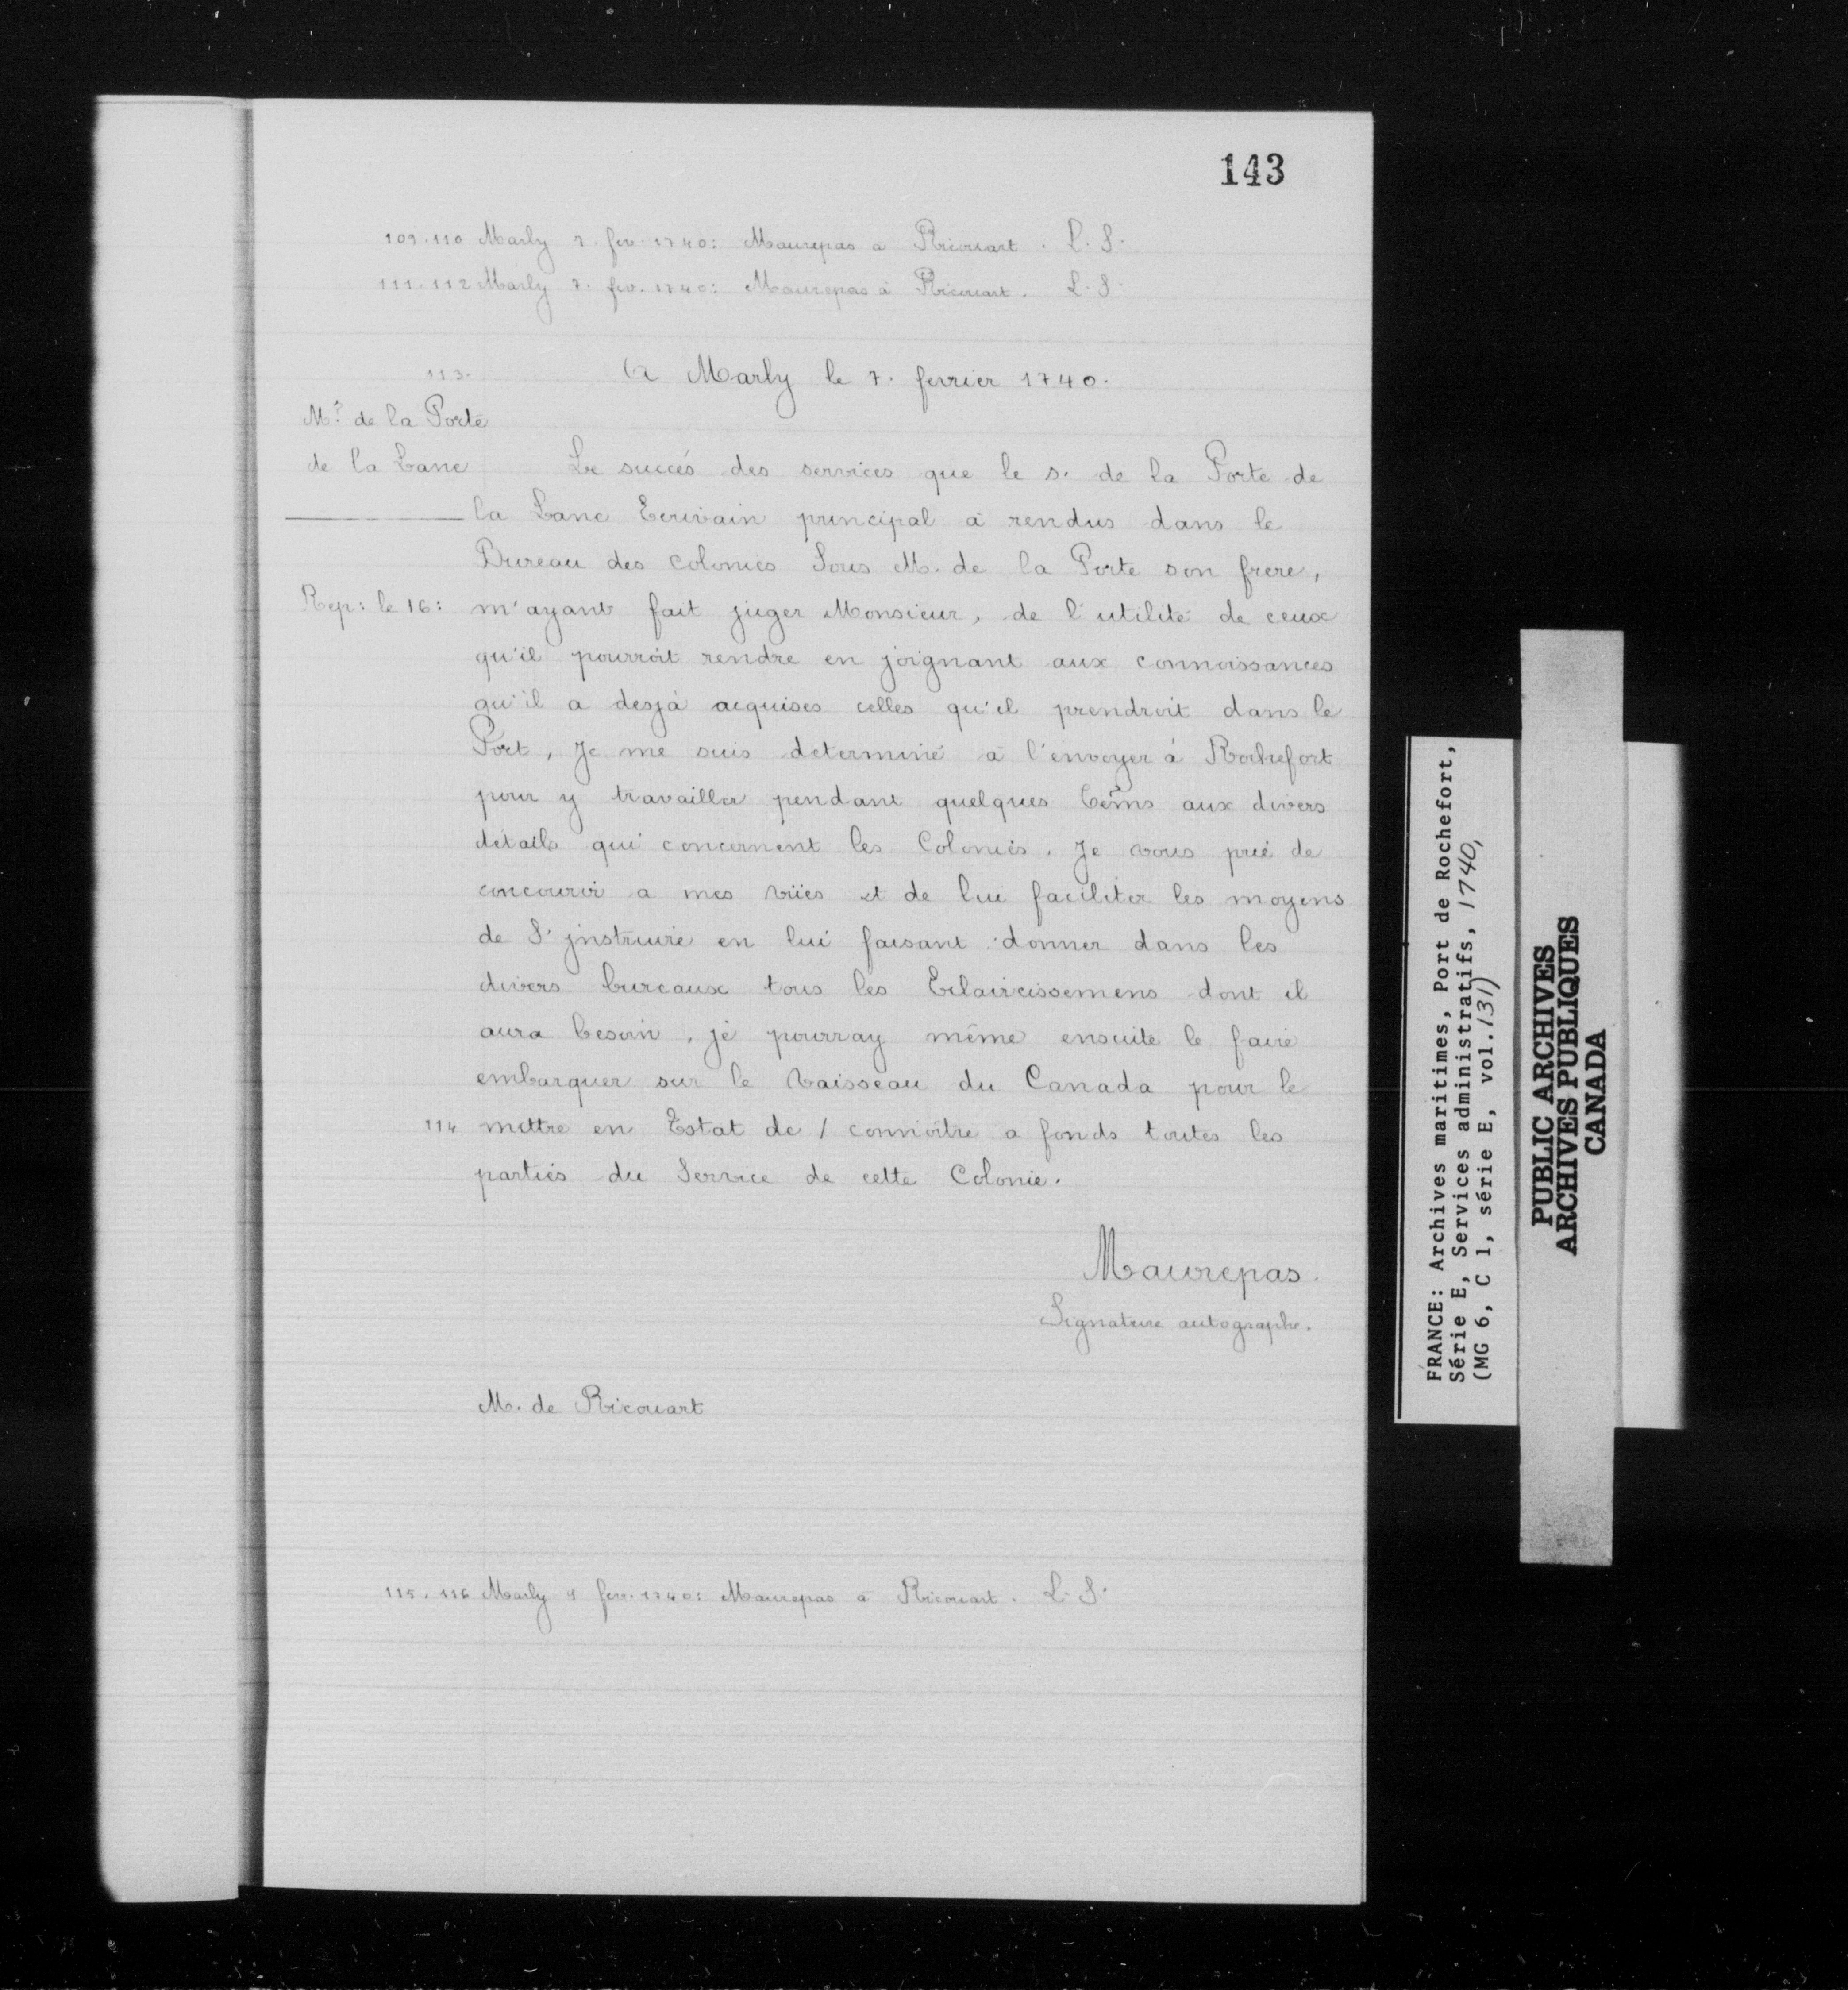 143
109.110 Marly 7. fev. 1740: Maurepas a Ricouart. L. S.
111.112 Marly 7. fev. 1740: Maurepas à Ricouart. L. S.
113.
A Marly le 7. fevrier 1740.
Mr. de la Porte
de la Lane
Le succés des services que le s. de la Porte de
la Lane Ecrivain principal à rendus dans le
Bureau des Colonies Sous M. de la Porte son frere,
Rep: le 16:
m'ayant fait juger Monsieur, de l'utilité de ceux
qu'il pourroit rendre en joignant aux connoissances
qu'il a desja acquises celles qu'il prendroit dans le
Port, Je me suis determiné à l'envoyer à Rochefort
pour y travailler pendant quelques tems aux divers
détails qui concernent les Colonies. Je vous prie de
concourir a mes vües et de lui faciliter les moyens
de S'jnstruire en lui faisant donner dans les
divers bureaux tous les Eclaircissemens dont il
aura besoin, je pourray même ensuite le faire
embarquer sur le Vaisseau du Canada pour le
114 mettre en Estat de / connoître a fonds toutes les
parties du Service de cette Colonie.
Maurepas.
Signature autographe.
M. de Ricouart
115.116 Marly 9 fev. 1740: Maurepas à Ricouart. L. S.
FRANCE: Archives maritimes, Port de Rochefort,
Série E, Services administratifs, 1740,
(MG 6, C 1, série E, vol. 131)
PUBLIC ARCHIVES
ARCHIVES PUBLIQUES
CANADA